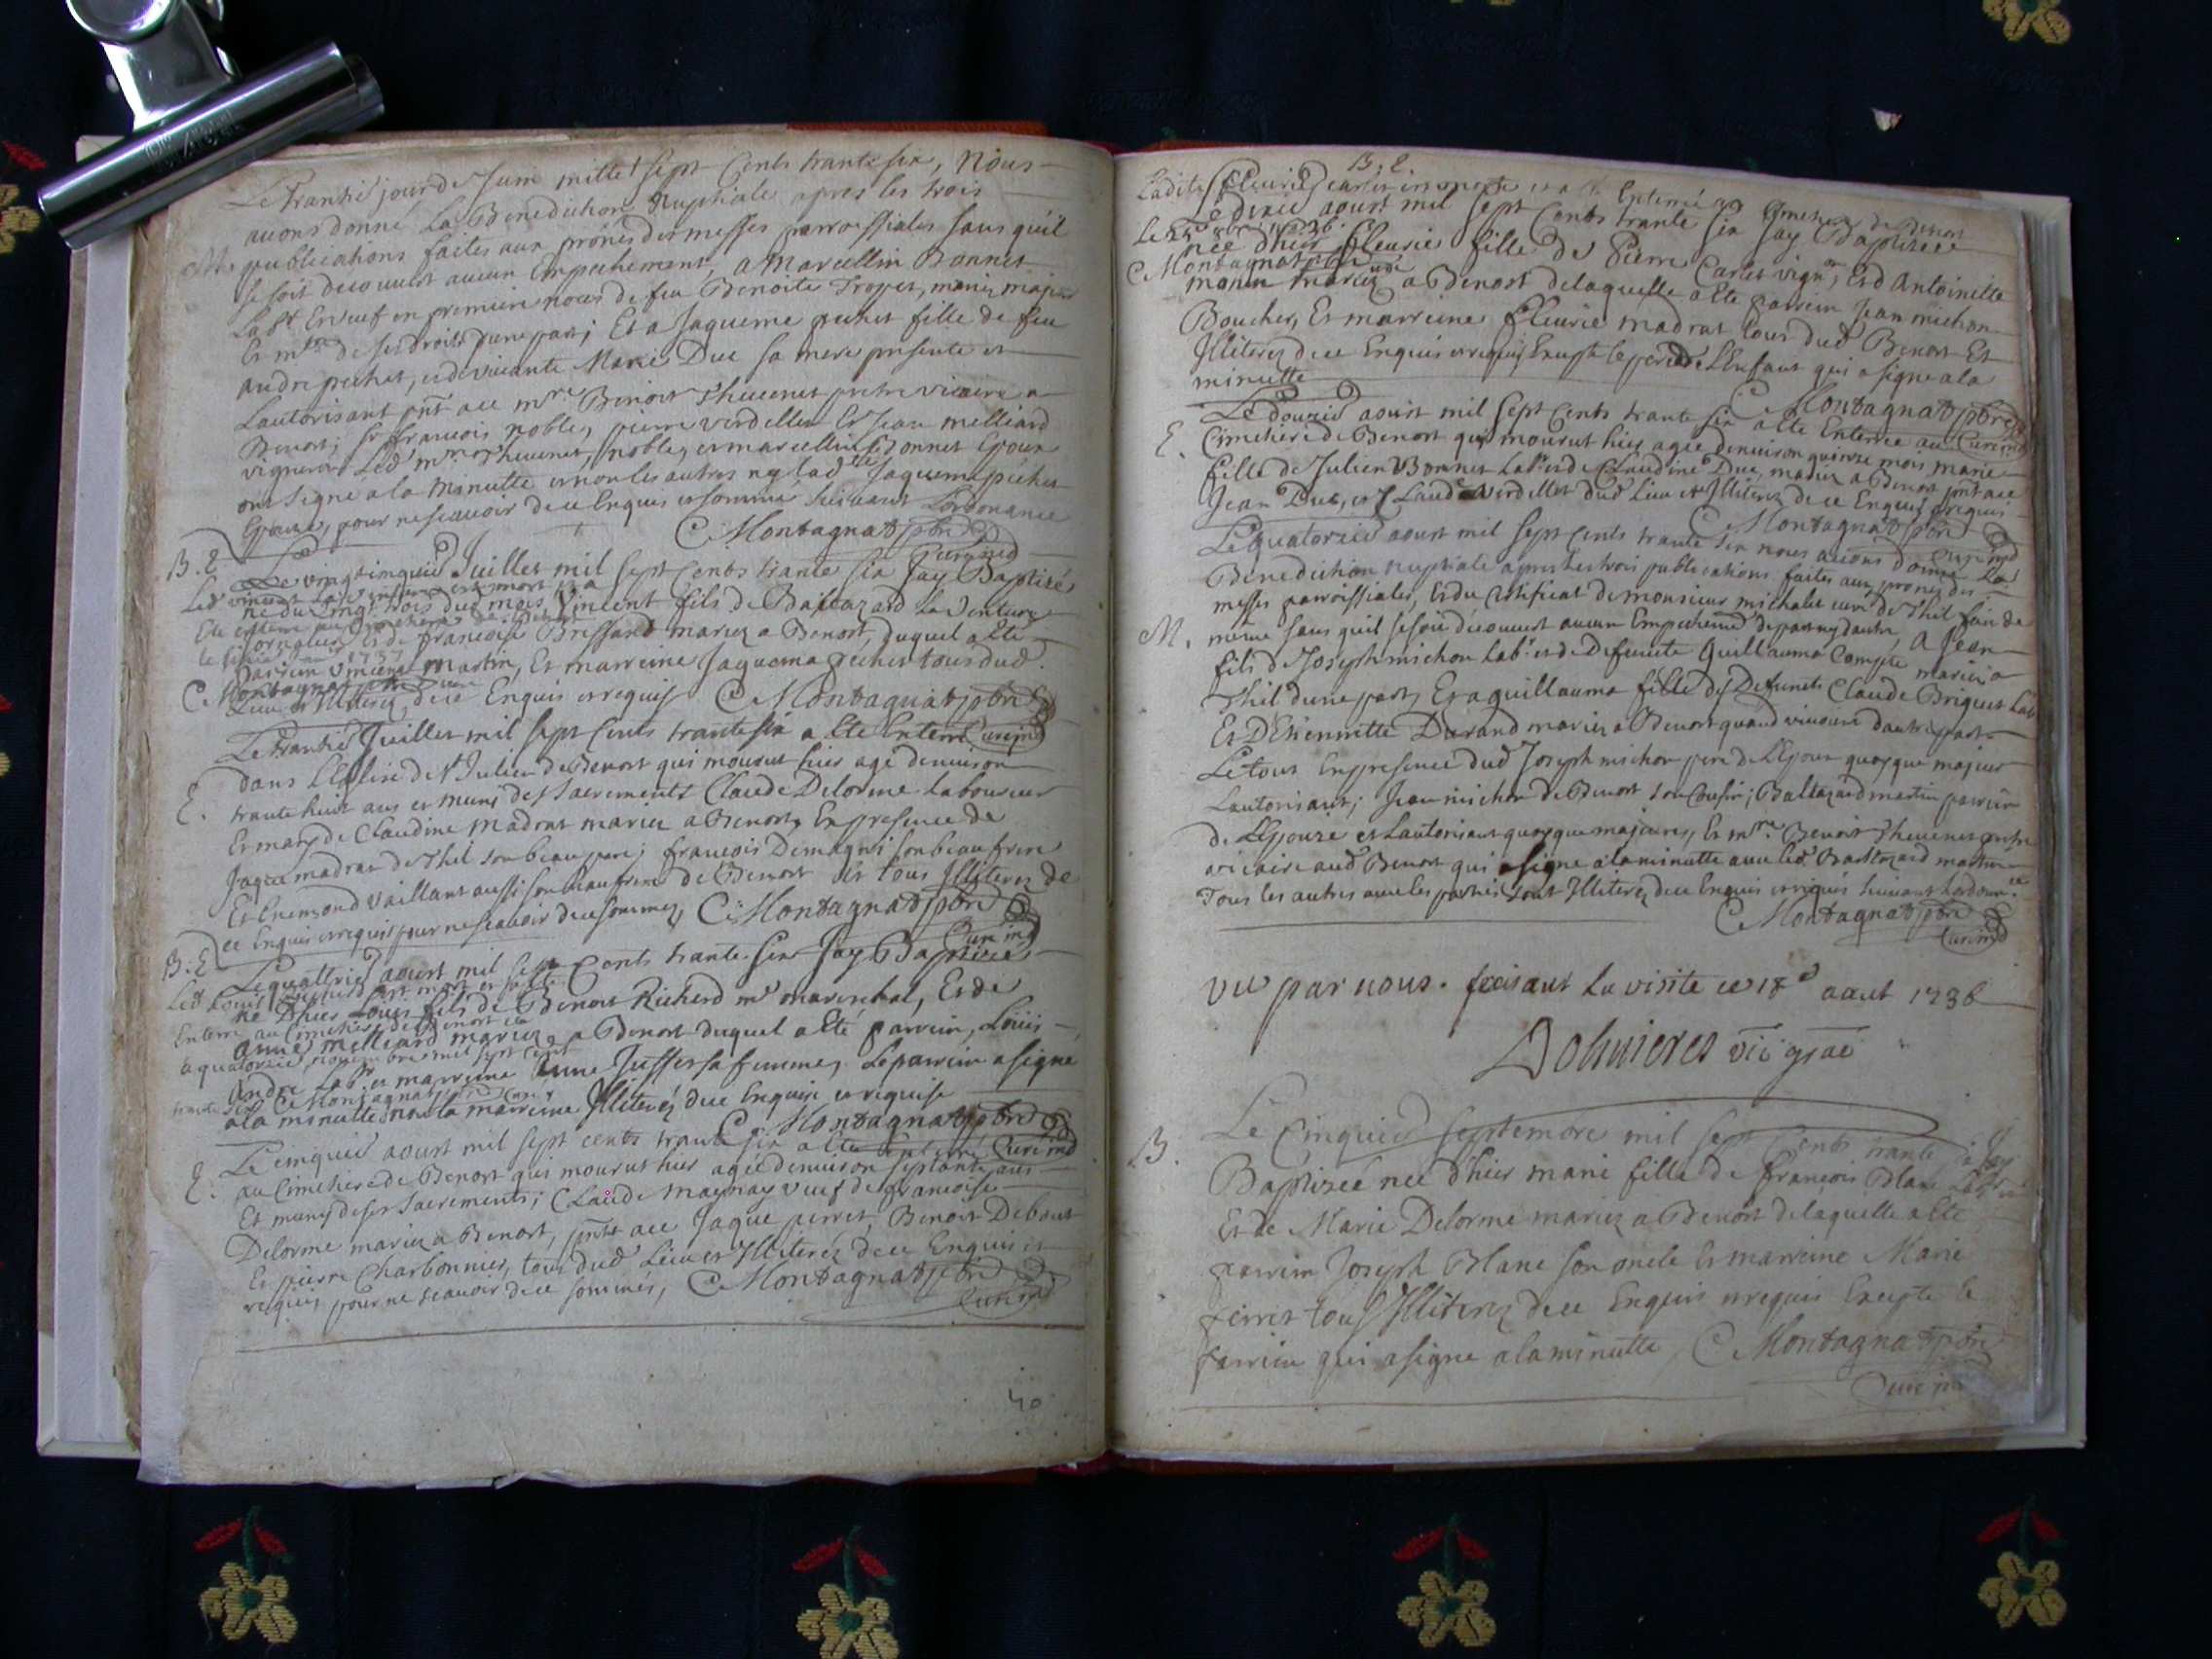 Le trantie jour de Juin mille sept Cents trante six, Nous
auons donné La Benediction Nuptiale apres les trois
M. publications faites aux prônes des messes parroissiales sans qu'il
se soit decouuert aucun Empechement, a Marcellin Bonnet
Labr Et veuf en premiere noces de feu Benoite Troyet, mariez majeur
Et mtre de ses droits d'une part; Et a Jaqueme pechet fille de feu
andre pechet, et de viuante Marie Duc sa mere presente et
Lautorisant pnt ace mre Benoit Theuenet pretre vicaire a
Benost; Sr francois noble, pierre verdellet Et Jean melliard
vignerons Led mre Theuenet, noble, et marcellin Bonnet Epoux
ont signé a la Minutte et non les autres ny lad Jaqueme pechet
Epouse, pour ne scauoir de ce Enquis et sommé suiuant Lordonance
C Montagnat pbre
Curé ind
B. E. Le vingt cinquie Juillet mil sept Cents trante six Jay Baptizé
Led vincent La Venture est mort et a
né du vingt trois dud mois Vincent fils de Baltazard La Venture
Ete enterré au Cimetiere de Benost
Jornalier, Et de francoise Brissand mariez a Benost, duquel a Ete
le 1737
parrein Vincent Martin, Et marreine Jaquema pechet tous dud
C Montagnat pbre Curé
Lieu et Illiterez, de ce Enquis et requis C Montagnat pbre
Curé ind
Le trantie Juillet mil sept Cents trante six a Ete Enterré
dans L'Eglise de St Julien de Benost qui mourut hier agé denuiron
E. trante huit ans et muni des Sacrements Claude Delorme laboureur
Et mary de Claudine Madrat mariez a Benost, En presence de
Jaque madrat de Thil son beau pere; francois Demagni son beau frere
Et Enemond Vaillant aussi son beau frere de Benost Et tous Illiterez de
ce Enquis et requis pour ne scauoir de ce sommez, C Montagnat pbre
Curé ind
B. E. Le quattrie aoust mil sept Cents trante six Jay Baptizé
Led Louis Richerd est mort et a Ete
né D'hier Louis fils de Benoit Richerd me mareschal, Et de
Enterré au Cimetiere de Benost le
anne melliard mariez a Benost duquel a Eté parrein, Loüis
a quatorzie nouembre mil sept Cent
andre Labr et marreine anne Jusser sa femme, Le parrein a signé
trante six C Montagnat pbre Curé
a la minutte non la marreine Illiterée de ce Enquise et requise
C Montagnat pbre
Curé ind
Le cinquie aoust mil sept cents trante six a Eté Enterré
E. au Cimetiere de Benost qui mourut hier agée denuiron septante ans
Et muny de ses Sacrements; Claude Maynay veuf de francoise
Delorme mariez a Benost, pnt ace Jaque perret, Benoit Debout
Et pierre Charbonnier, tous dud Lieu et Illiterez de ce Enquis et
requis pour ne scauoir de ce sommés, C Montagnat pbre
Curé ind
40
B. E.
Ladite fleurie carlet est morte et a Ete Enterré au Cimetiere de Benost
Le dixie aoust mil sept Cents trante six Jay Baptizée
Le 25e 8bre 1736.
née d'hier fleurie fille de Pierre Carlet vignr, Et d Antoinette
C Montagnat pbre Curé
mariez a Benost delaquelle a Ete parrein Jean michon
Boucher, Et marreine fleurie madrat tous dud Benost Et
Illiterez de ce Enquis et requis Excepte le pere de L'Enfant qui a signe a la
minutte
C Montagnat pbre
Curé ind
Le douzie aoust mil sept Cents trante six a Ete Enterrée au
E. Cimetiere de Benost qui mourut hier agée denuiron quinze mois marie
fille de Julien Bonnet Labr et de Claudine Duc, mariez a Benost pnt ace
Jean Duc, et Claude Verdellet dud Lieu et Illiterez de ce Enquis et requis
C Montagnat pbre
Curé ind
Le quatorzie aoust mil sept Cents trante six nous auons donné La
Benediction nuptiale apres les trois publications faites aux prones des
messes parroissiales, Et du Certificat de monsieur michalet curé de Thil fait de
M. meme sans quil se soit decouuert aucun Empechement de part ny dautre, a Jean
fils de Joseph michon Labr et de Defuncte Guillauma Compte mariez a
Thil dune part, Et a guillauma fille des Defunts Claude Briquet Labr
Et D'Etiennette Durand mariez a Benost quand viuoient dautre part
Le tout En presence dud Joseph michon pere de L'Epoux quoyque majeur
Lautorisant; Jean michon de Benost son Cousin; Baltazard martin parrein
de L'Epouse et Lautorisant quoyque majeure, Et mre Benoit Theuenet pretre
vicaire aud Benost qui a signe a la minutte auec led Baltazard martin
Tous les autres auec les parties sont Illiterez de ce Enquis et requis suiuant Lordonnce
C Montagnat pbre
Curé ind
vu par nous. faisant la visite ce 18e aout 1736
Dolmieres vic gral
B. Le Cinquie septembre mil sept Cents trante six Jay
Baptizée née d'hier marie fille de francois Blanc Labr
Et de Marie Delorme mariez a Benost delaquelle a Ete
parrein Joseph Blanc son oncle Et marreine Marie
perret tous Illiterez de ce Enquis et requis Excepte le
parrein qui a signe a la minutte C Montagnat pbre
Curé ind